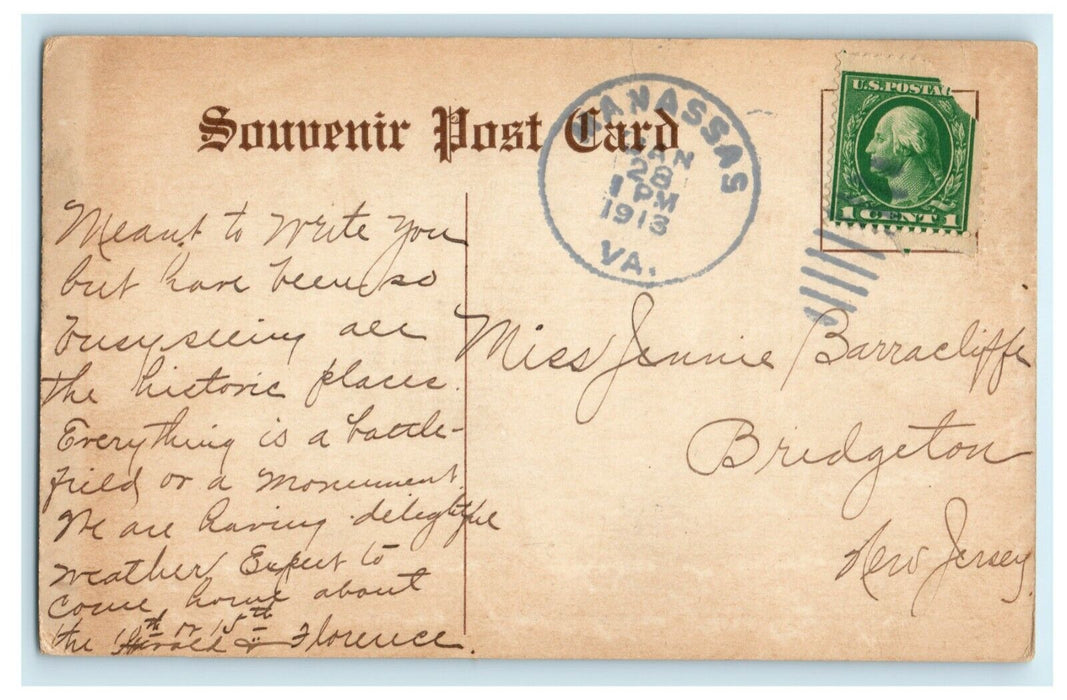 Souvenir Post Card
MANASSAS
JAN
28
1 PM
1913
VA.
U.S. POSTAG
1 CENT 1
Meant to write you
but have been so
busy seeing all
the historic places.
Everything is a battle-
field or a monument.
We are having delightful
weather Expect to
come home about
th or 15th
the Florence.
Miss Jennie Barracliffe
Bridgeton
New Jersey.